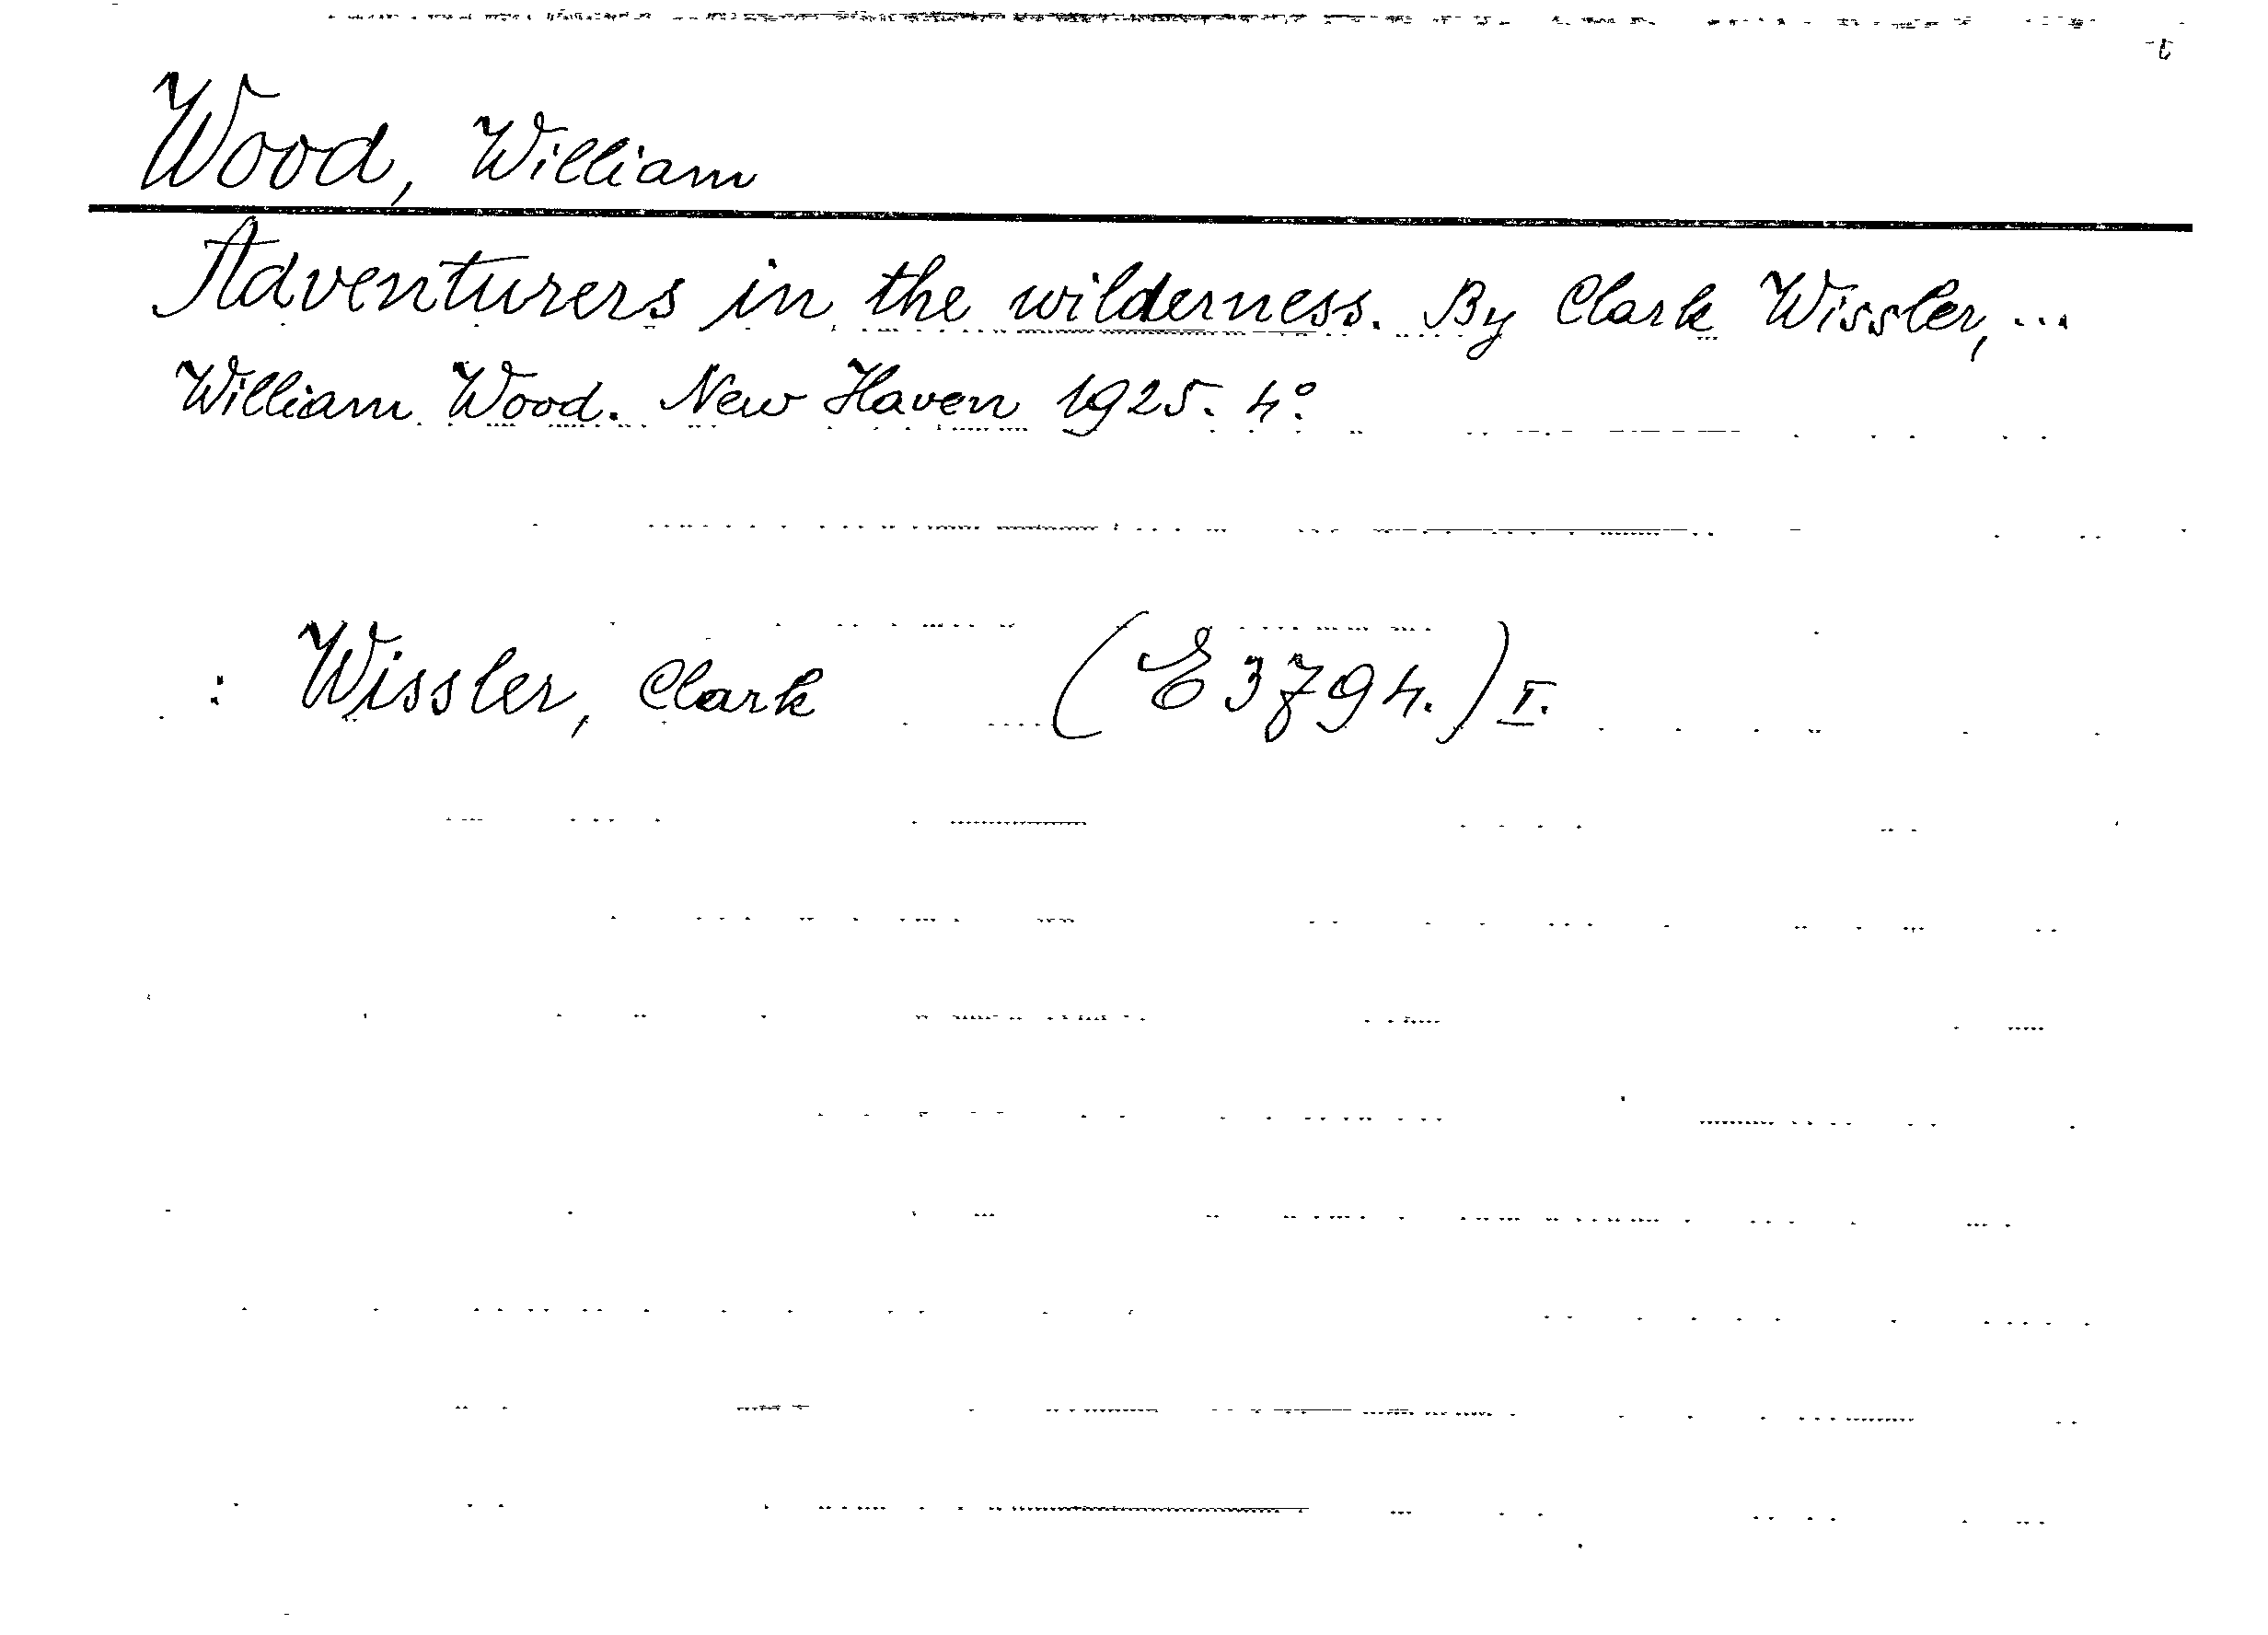 Wood, William
Adventurers in the wilderness. By Clark Wissler, ...
William Wood. New Haven 1925. 4°.
: Wissler, Clark (E 3794.) I.